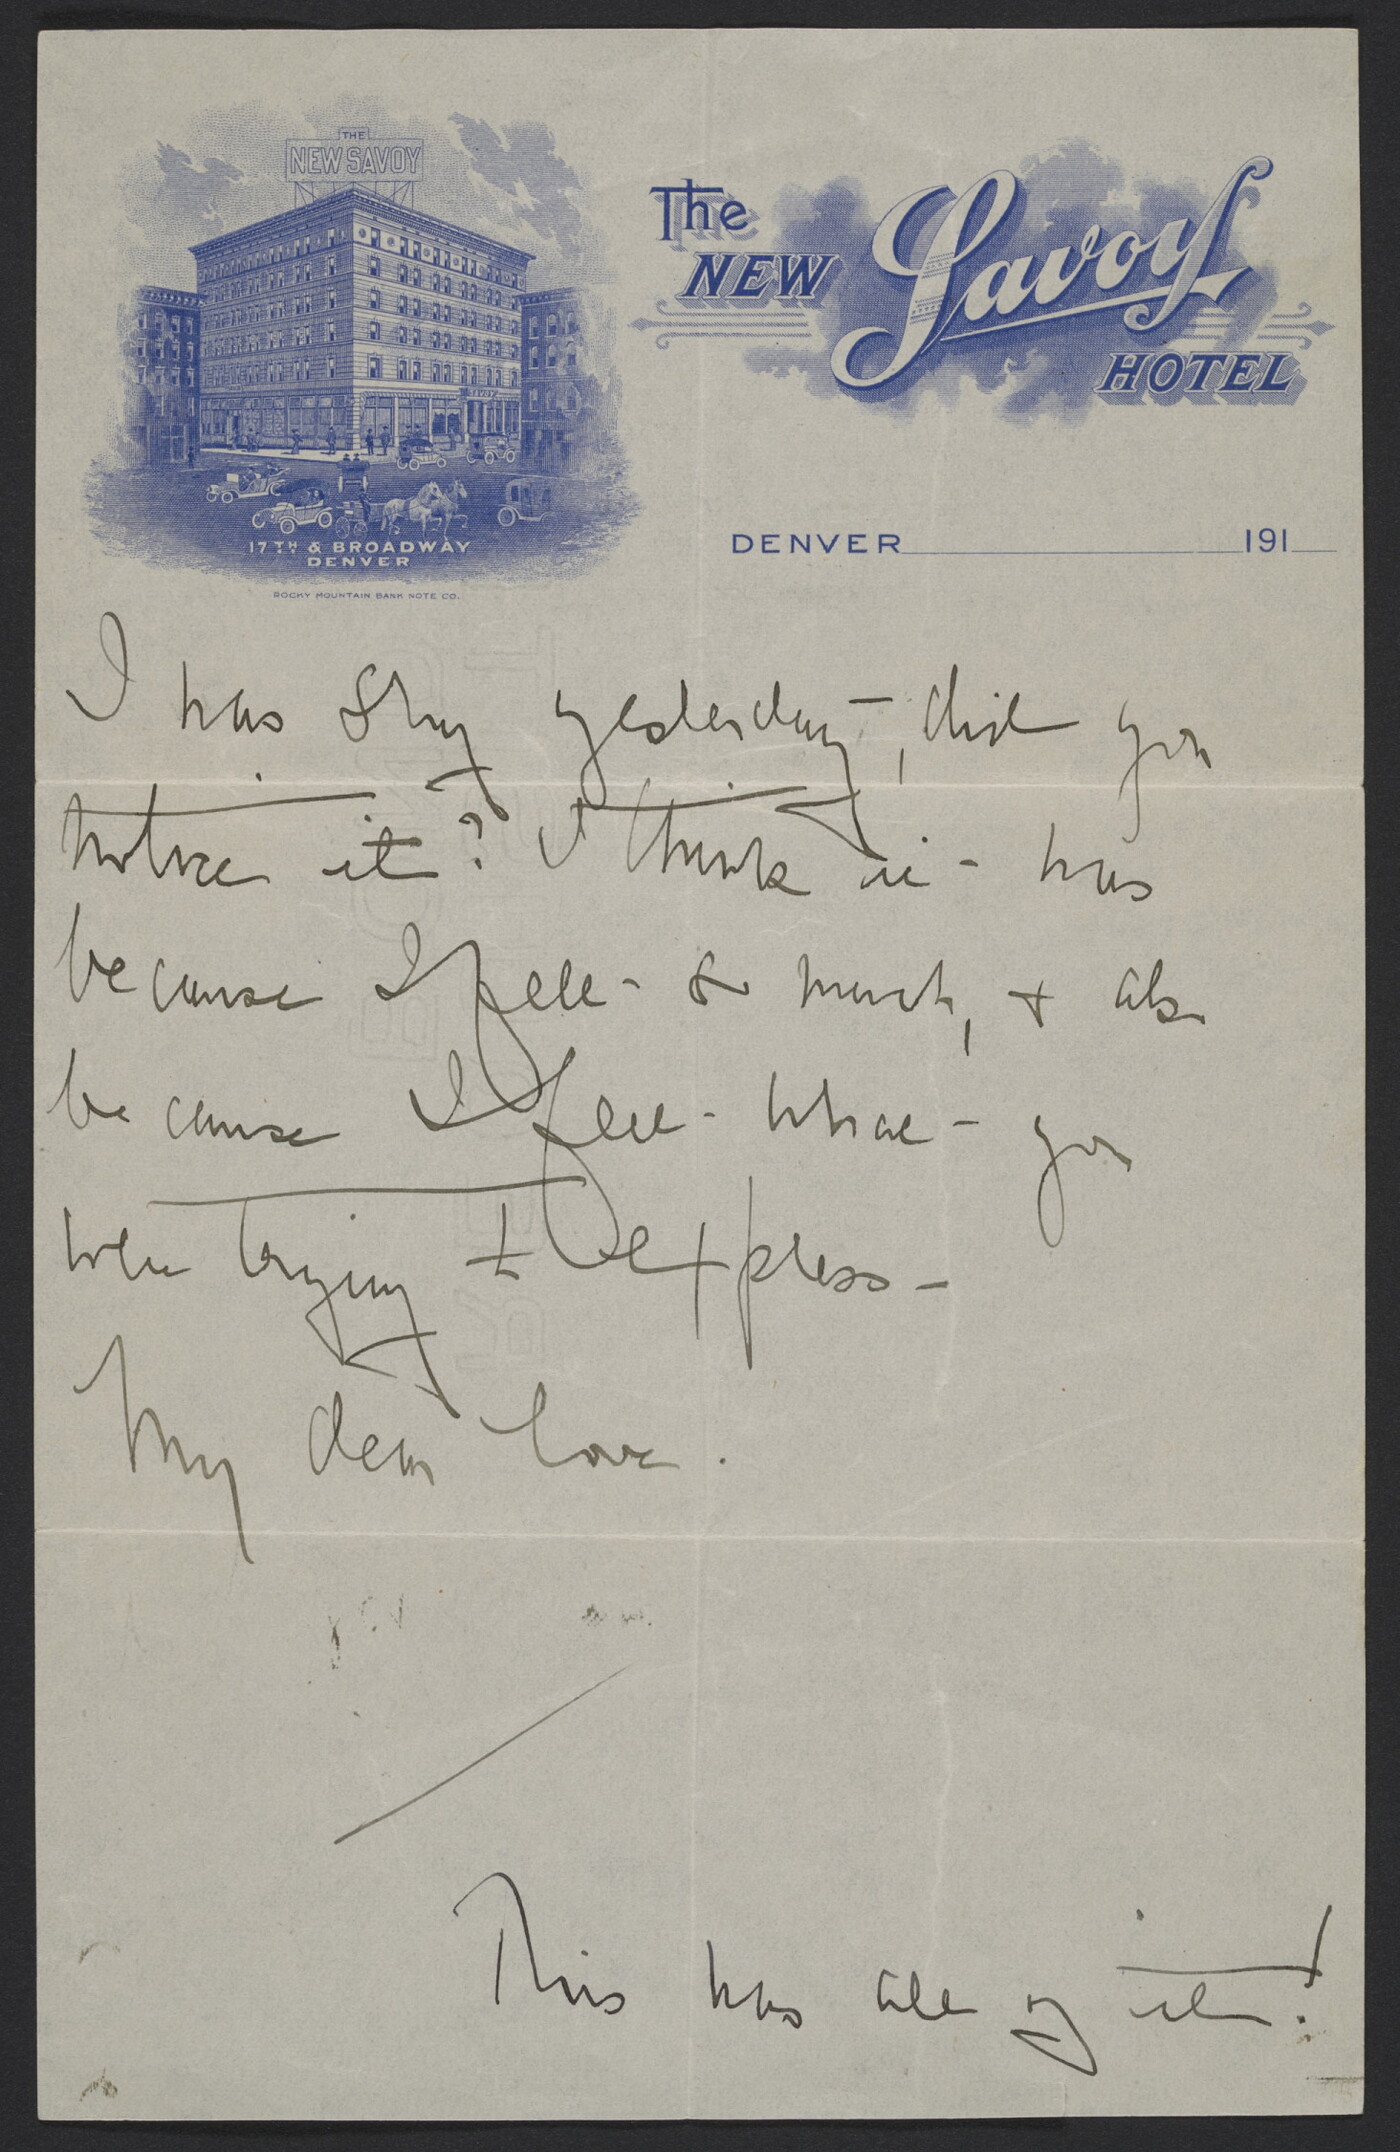 THE
NEW SAVOY
SAVOY
17TH & BROADWAY
DENVER
ROCKY MOUNTAIN BANK NOTE CO.
The
NEW Savoy
HOTEL
DENVER 191
I was shy yesterday –, did you
notice it? I think it – was
because I felt – so much, & also
because I felt – what – you
were trying to express –
My dear love.
This was all of it!